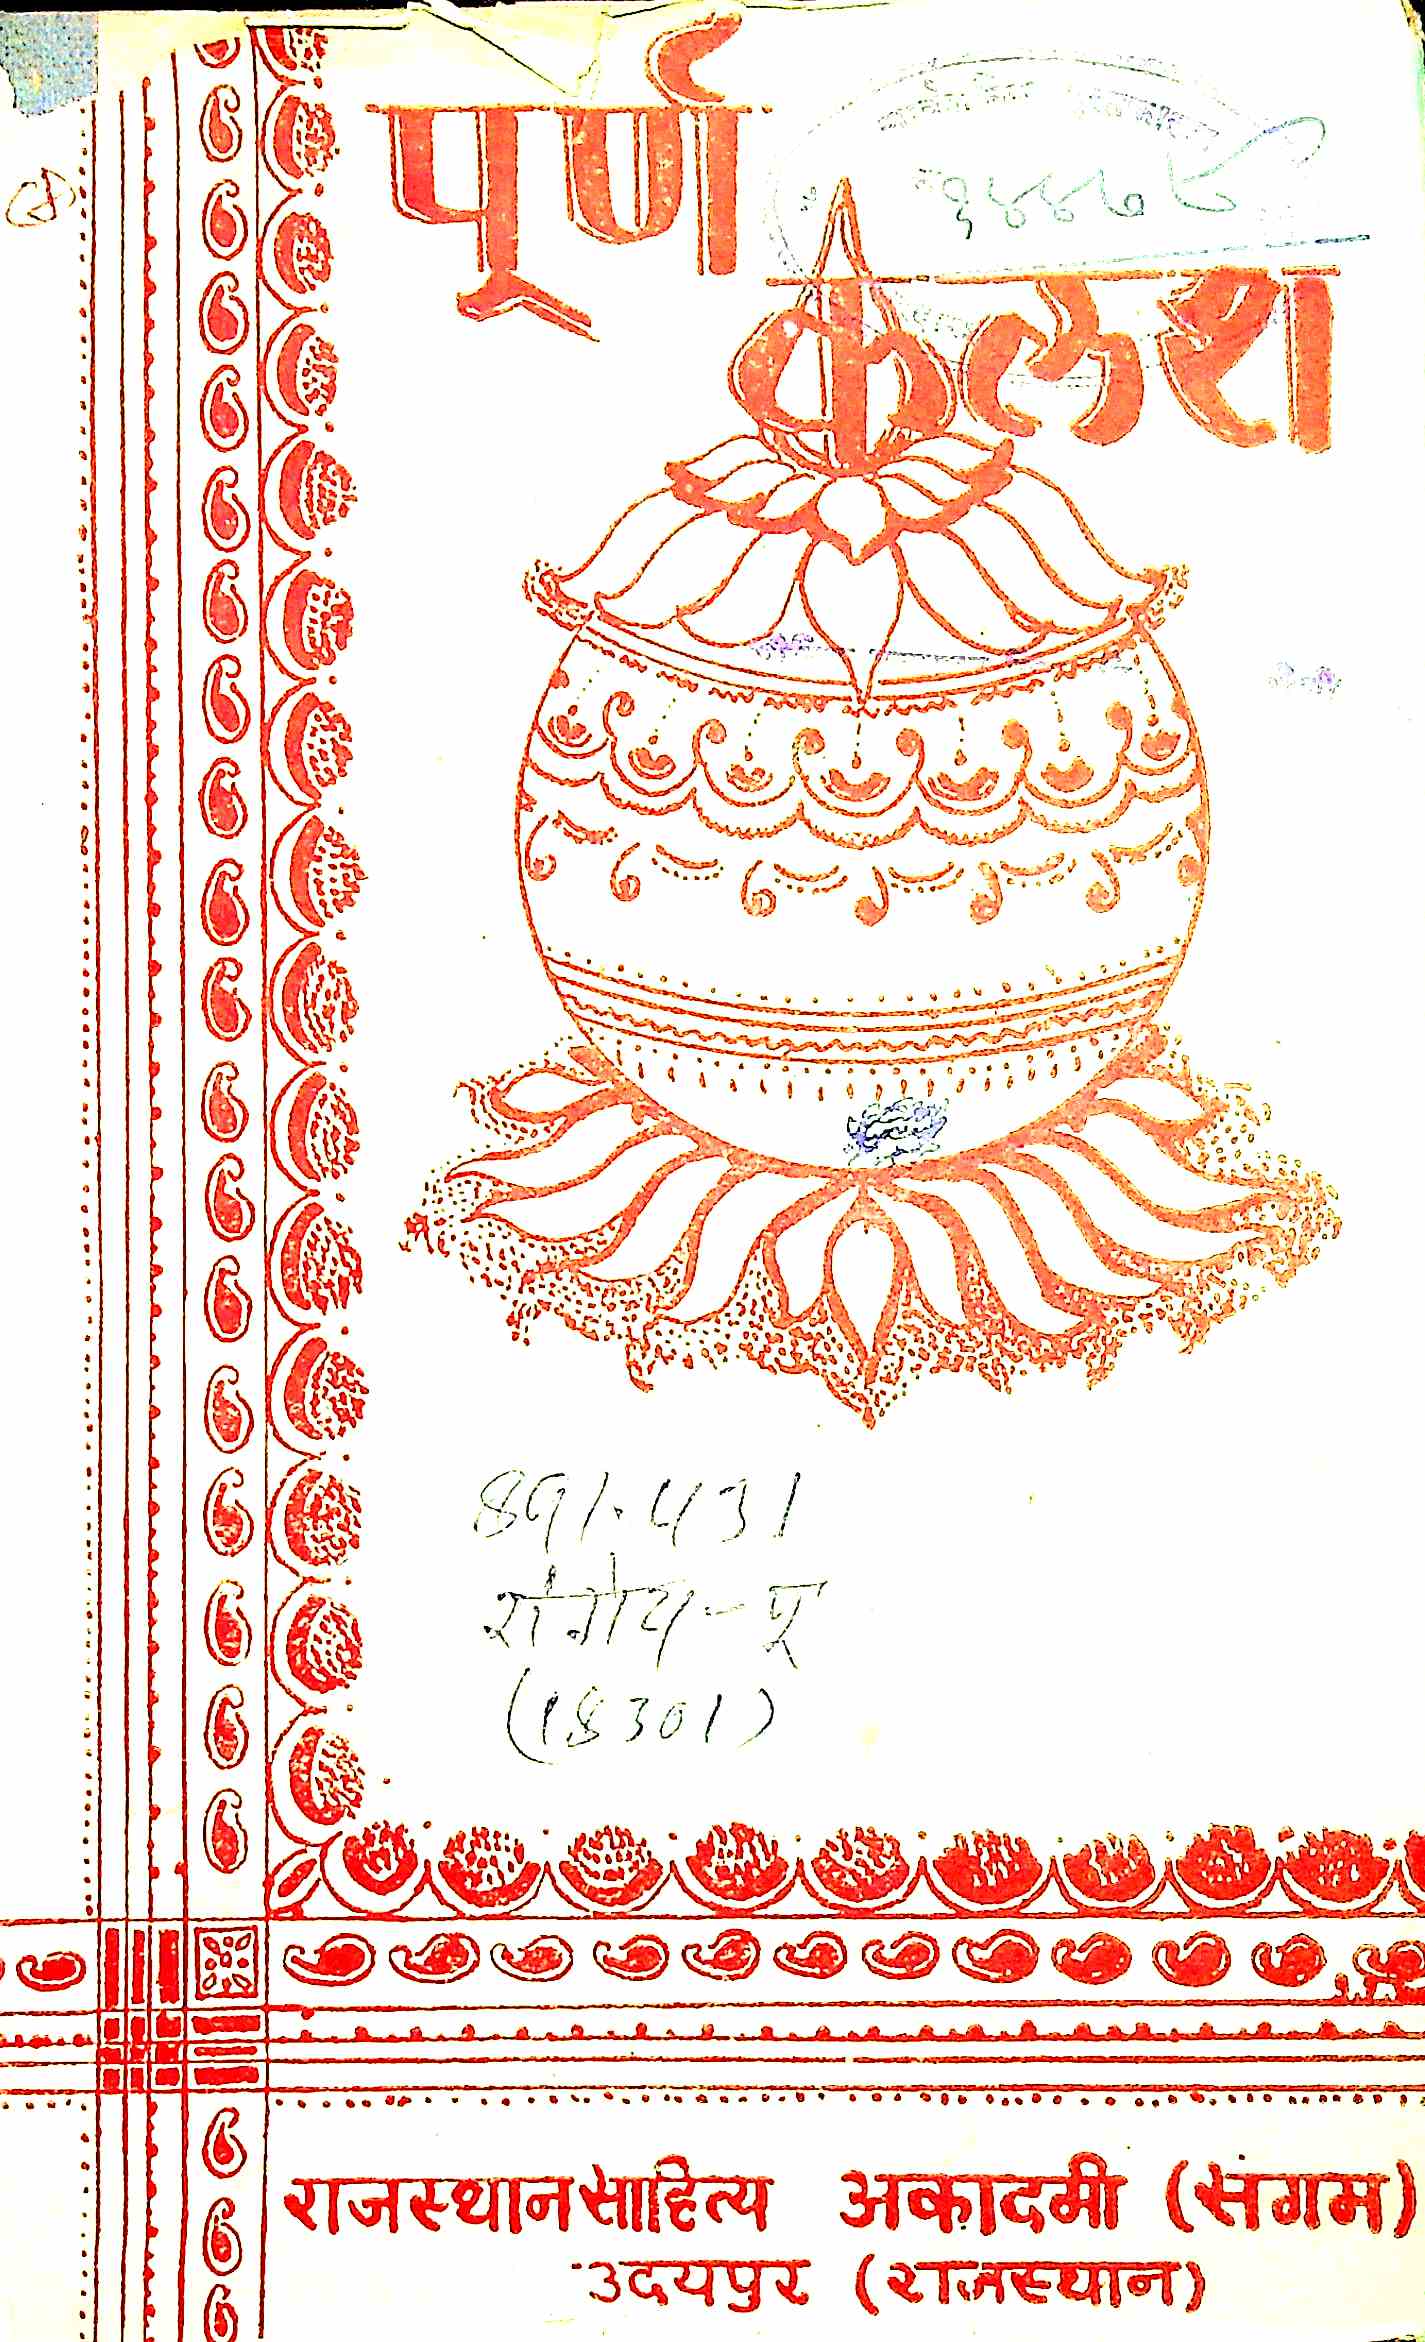 पूर्ण
कलश
891.431
रांगेय-पू
(18301)
राजस्थान साहित्य अकादमी (संगम)
उदयपुर (राजस्थान)